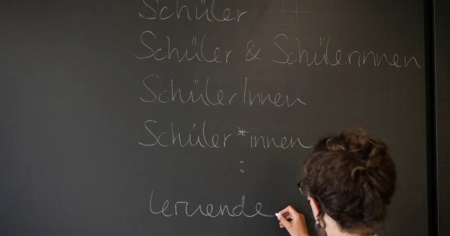 Schüler
Schüler & Schülerinnen
SchülerInnen
Schüler*innen
:
lernende